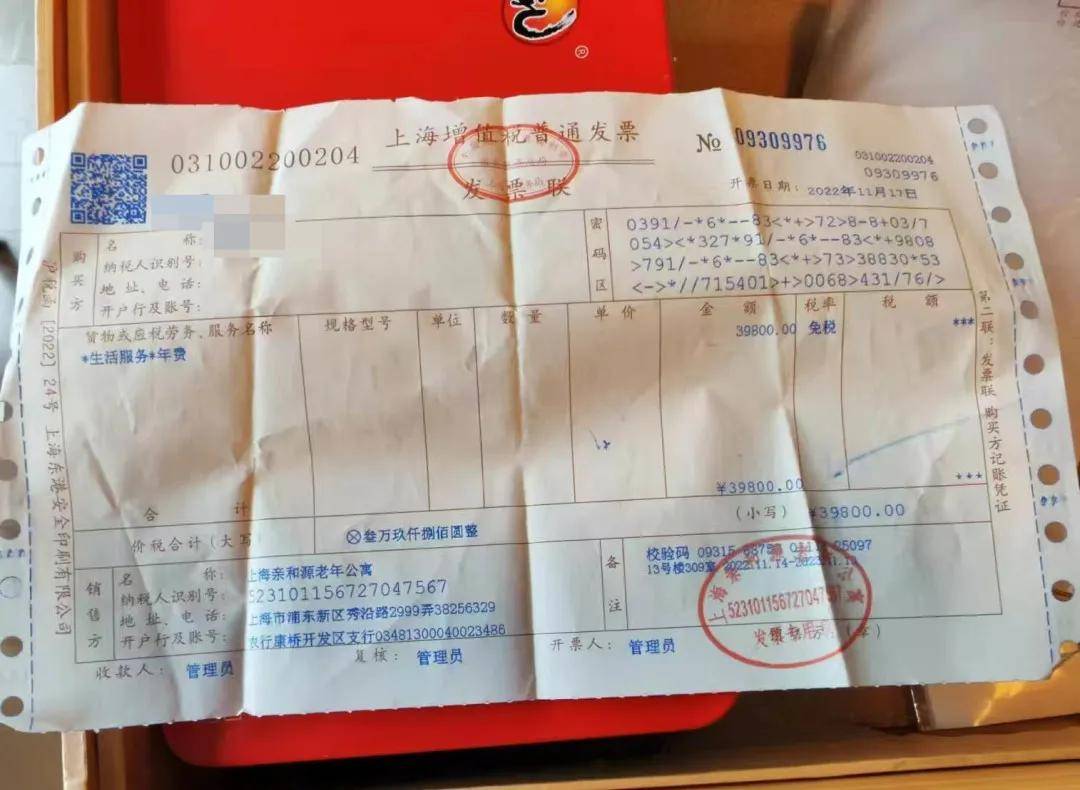 上海增值税普通发票
发票联
031002200204
№ 09309976
031002200204
09309976
开票日期: 2022年11月17日
购买方
名 称:
纳税人识别号:
地 址、电 话:
开户行及账号:
密码区
0391/-*6*--83<*+>72>8-8+03/7
054><*327*91/-*6*--83<*+9808
>791/-*6*--83<*+>73>38830*53
<->*//715401>+>0068>431/76/>
货物或应税劳务、服务名称 规格型号 单位 数量 单价 金额 税率 税额
*生活服务*年费 39800.00 免税 ***
合 计 ¥39800.00 ***
价税合计(大写) ⊗叁万玖仟捌佰圆整 (小写) ¥39800.00
销售方
名 称: 上海亲和源老年公寓
纳税人识别号: 523101156727047567
地 址、电 话: 上海市浦东新区秀沿路2999弄38256329
开户行及账号: 农行康桥开发区支行03481300040023486
备注
校验码 09315 25097
13号楼309室 2022.11.14-2023.11.13
收款人: 管理员 复核: 管理员 开票人: 管理员
523101156727047567
发票专用章
沪税函〔2022〕24号 上海东港安全印刷有限公司
第二联:发票联 购买方记账凭证
®